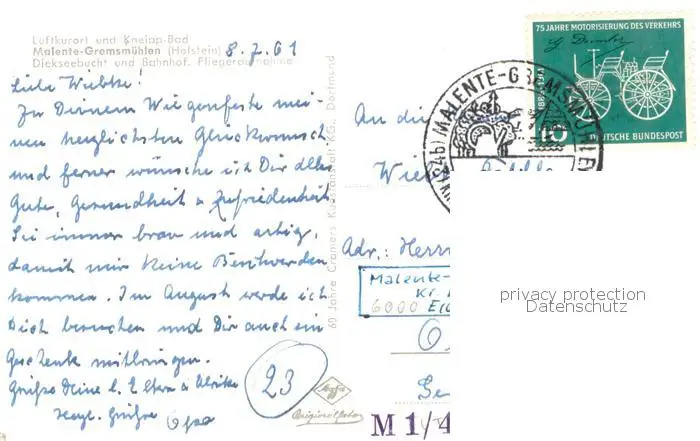 Luftkurort und Kneipp-Bad
Malente-Gremsmühlen (Holstein)
Diekseebucht und Bahnhof. Fliegeraufnahme
8.7.61
Liebe Wiebke!
Zu Deinem Wiegenfeste mei-
nen herzlichsten Glückwunsch
und ferner wünsche ich Dir alles
Gute, Gesundheit & Zufriedenheit
Sei immer brav und artig,
damit mir keine Beschwerden
kommen. Im August werde ich
Dich besuchen und Dir auch ein
Geschenk mitbringen.
Grüße Deine l. Eltern & Ulrike
Herzl. Grüße Opa
23
60 Jahre Cramers Kunstanstalt KG., Dortmund
Agfa
Originalfoto
75 JAHRE MOTORISIERUNG DES VERKEHRS
G. Daimler
10
DEUTSCHE BUNDESPOST
(24b) MALENTE-GREMSMÜHLEN
An die
Adr.: Herrn
Malente-
6000
M 1/4
privacy protection
Datenschutz